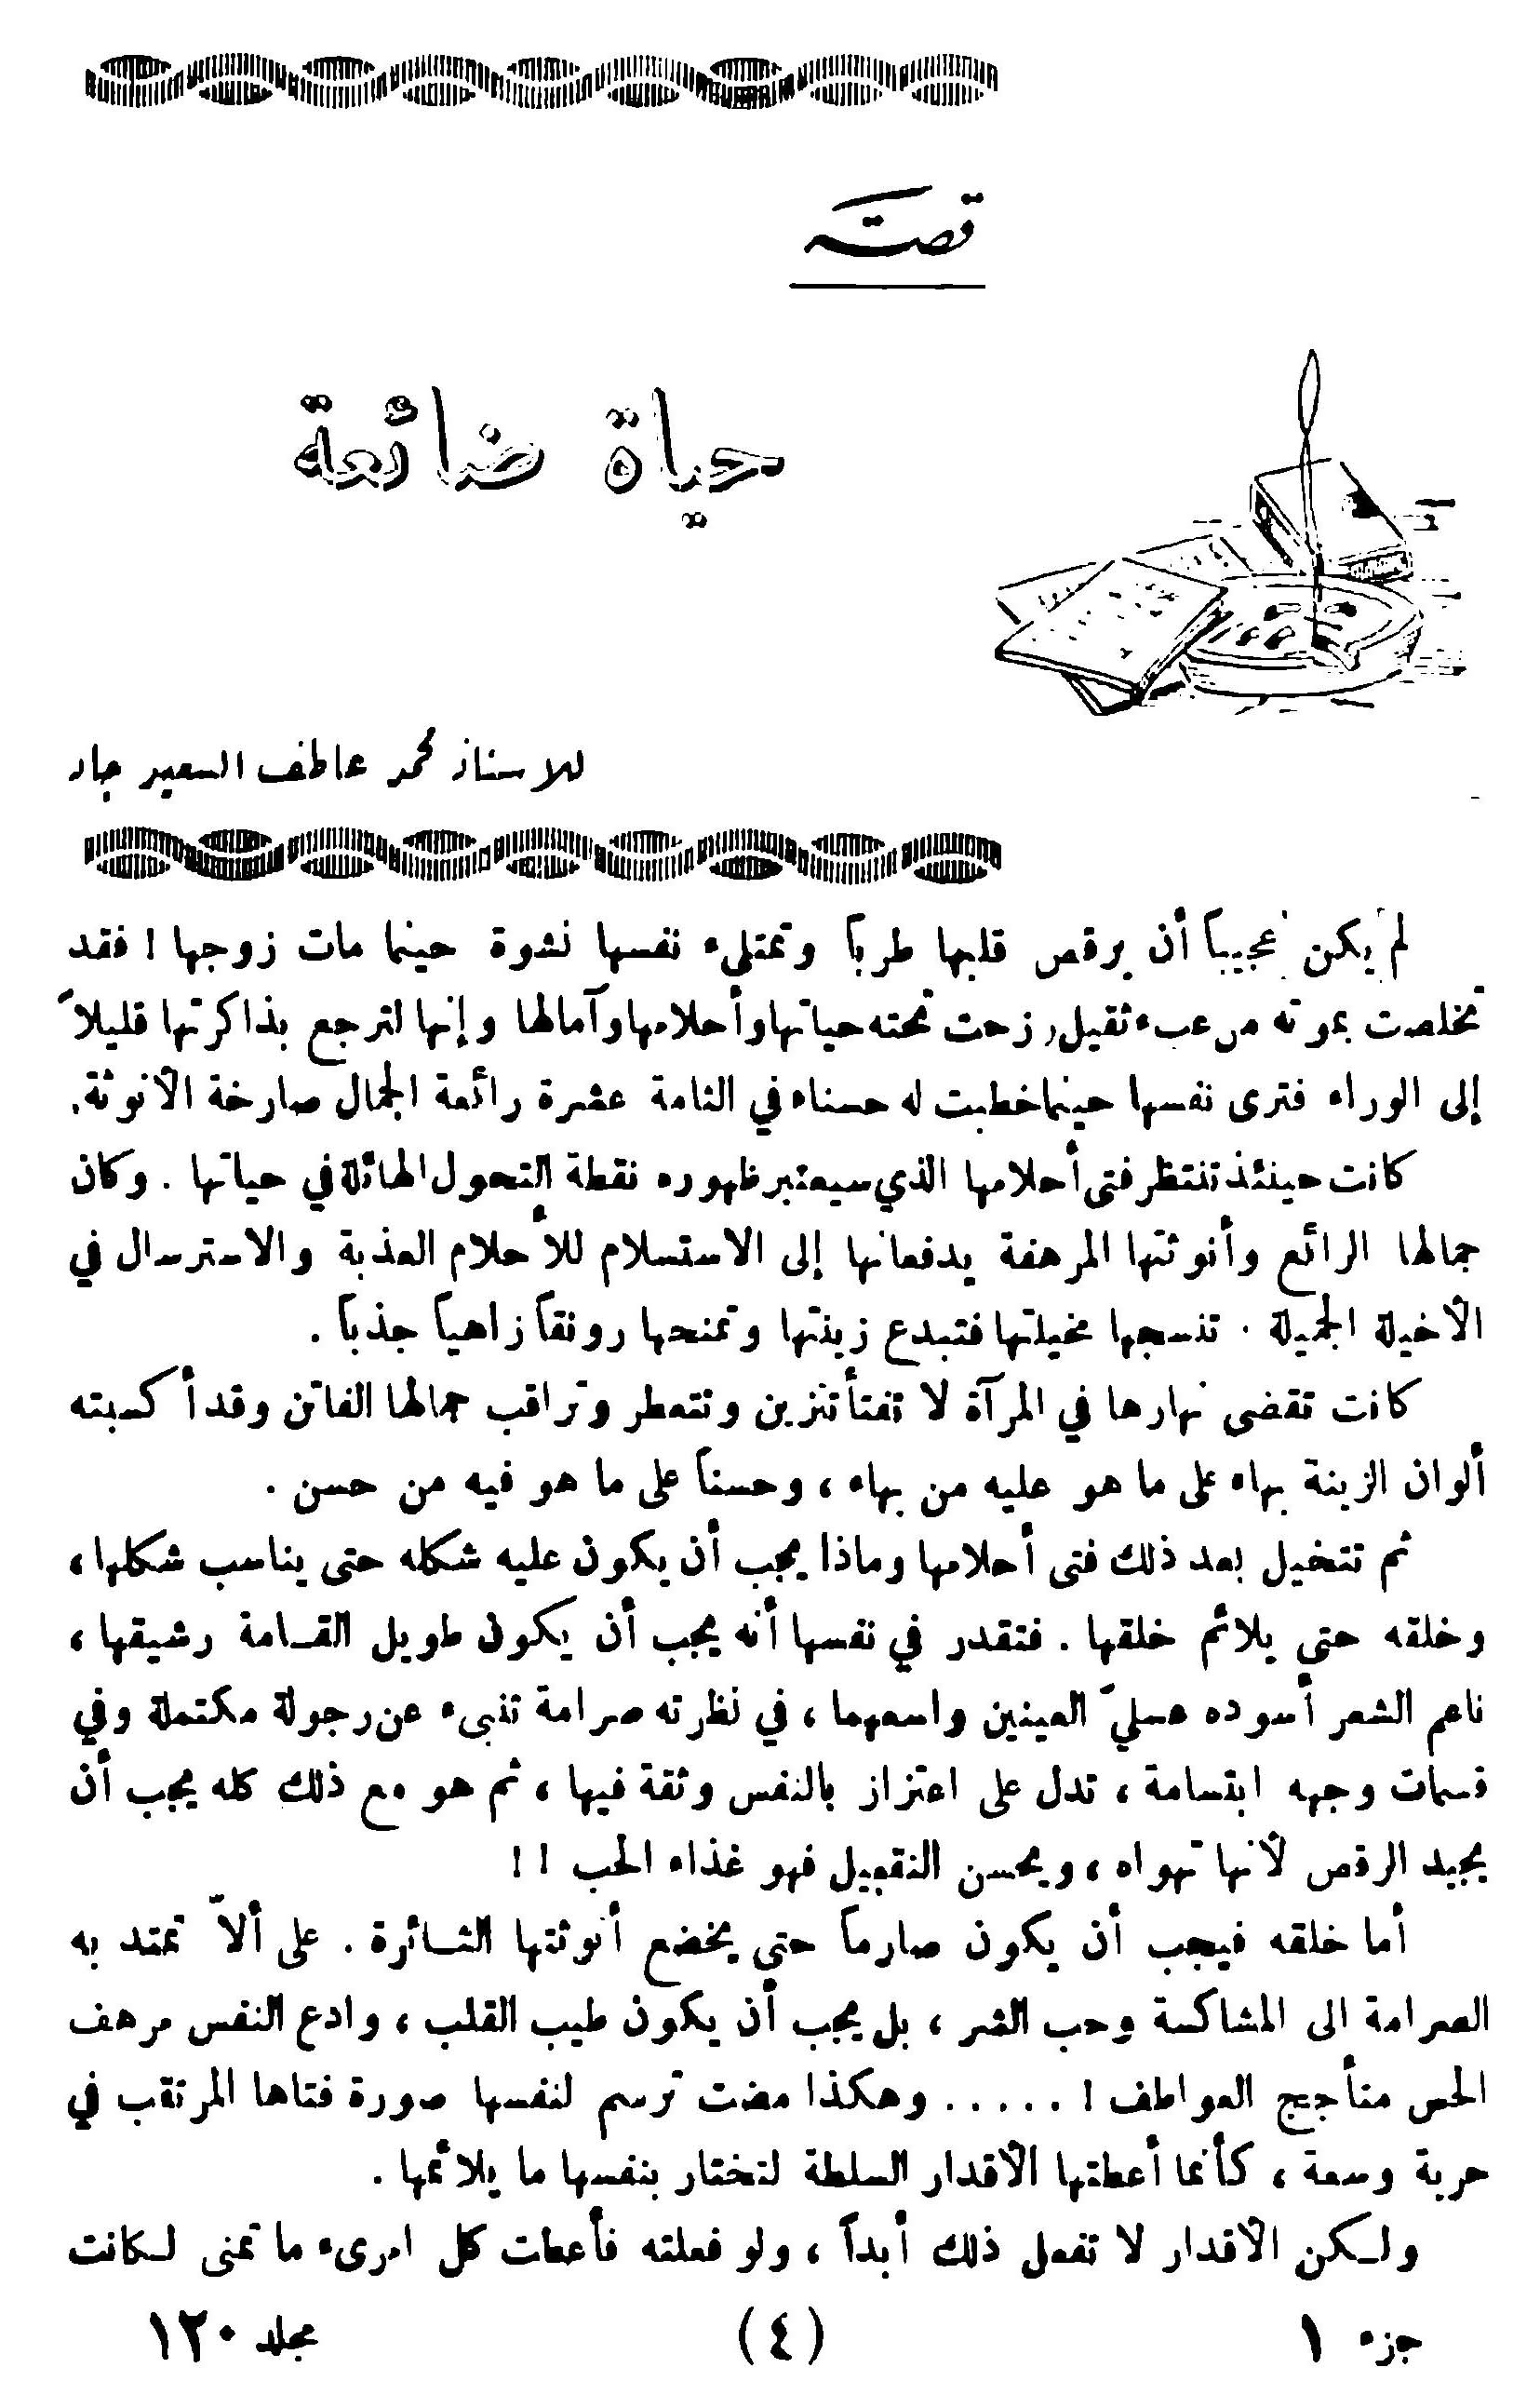 قصة
حياة ضائعة
للاستاذ محمد عاطف السعيد جاد
لم يكن عجيباً أن يرقص قلبها طرباً وتمتلىء نفسها نشوة حينما مات زوجها ! فقد
تخلصت بموته من عبء ثقيل رزحت تحته حياتها وأحلامها وآمالها وإنها لترجع بذاكرتها قليلاً
إلى الوراء فترى نفسها حينما خطبت له حسناء في الثامنة عشرة رائعة الجمال صارخة الأنوثة .
كانت حينئذ تنتظر فتى أحلامها الذي سيعتبر ظهوره نقطة التحول الهائلة في حياتها . وكان
جمالها الرائع وأنوثتها المرهفة يدفعانها إلى الاستسلام للأحلام العذبة والاسترسال في
الأخيلة الجميلة . تنسجها مخيلتها فتبدع زينتها وتمنحها رونقاً زاهياً جذباً .
كانت تقضى نهارها في المرآة لا تفتأ تتزين وتتعطر وتراقب جمالها الفاتن وقد أكسبته
ألوان الزينة بهاء على ما هو عليه من بهاء ، وحسناً على ما هو فيه من حسن .
ثم تتخيل بعد ذلك فتى أحلامها وماذا يجب أن يكون عليه شكله حتى يناسب شكلها ،
وخلقه حتى يلائم خلقها . فتقدر في نفسها أنه يجب أن يكون طويل القامة رشيقها ،
ناعم الشعر أسوده عسليّ العينين واسعهما ، في نظرته صرامة تنبىء عن رجولة مكتملة وفي
قسمات وجهه ابتسامة ، تدل على اعتزاز بالنفس وثقة فيها ، ثم هو مع ذلك كله يجب أن
يجيد الرقص لأنها تهواه ، ويحسن التقبيل فهو غذاء الحب ! !
أما خلقه فيجب أن يكون صارماً حتى يخضع أنوثتها الثائرة . على ألاّ تمتد به
الصرامة الى المشاكسة وحب الشر ، بل يجب أن يكون طيب القلب ، وادع النفس مرهف
الحس متأجج العواطف ! ..... وهكذا مضت ترسم لنفسها صورة فتاها المرتقب في
حرية وسعة ، كأنما أعطتها الأقدار السلطة لتختار بنفسها ما يلائمها .
ولكن الأقدار لا تفعل ذلك أبداً ، ولو فعلته فأعطت كل امرىء ما تمنى لكانت
جزء ١ (٤) مجلد ١٢٠